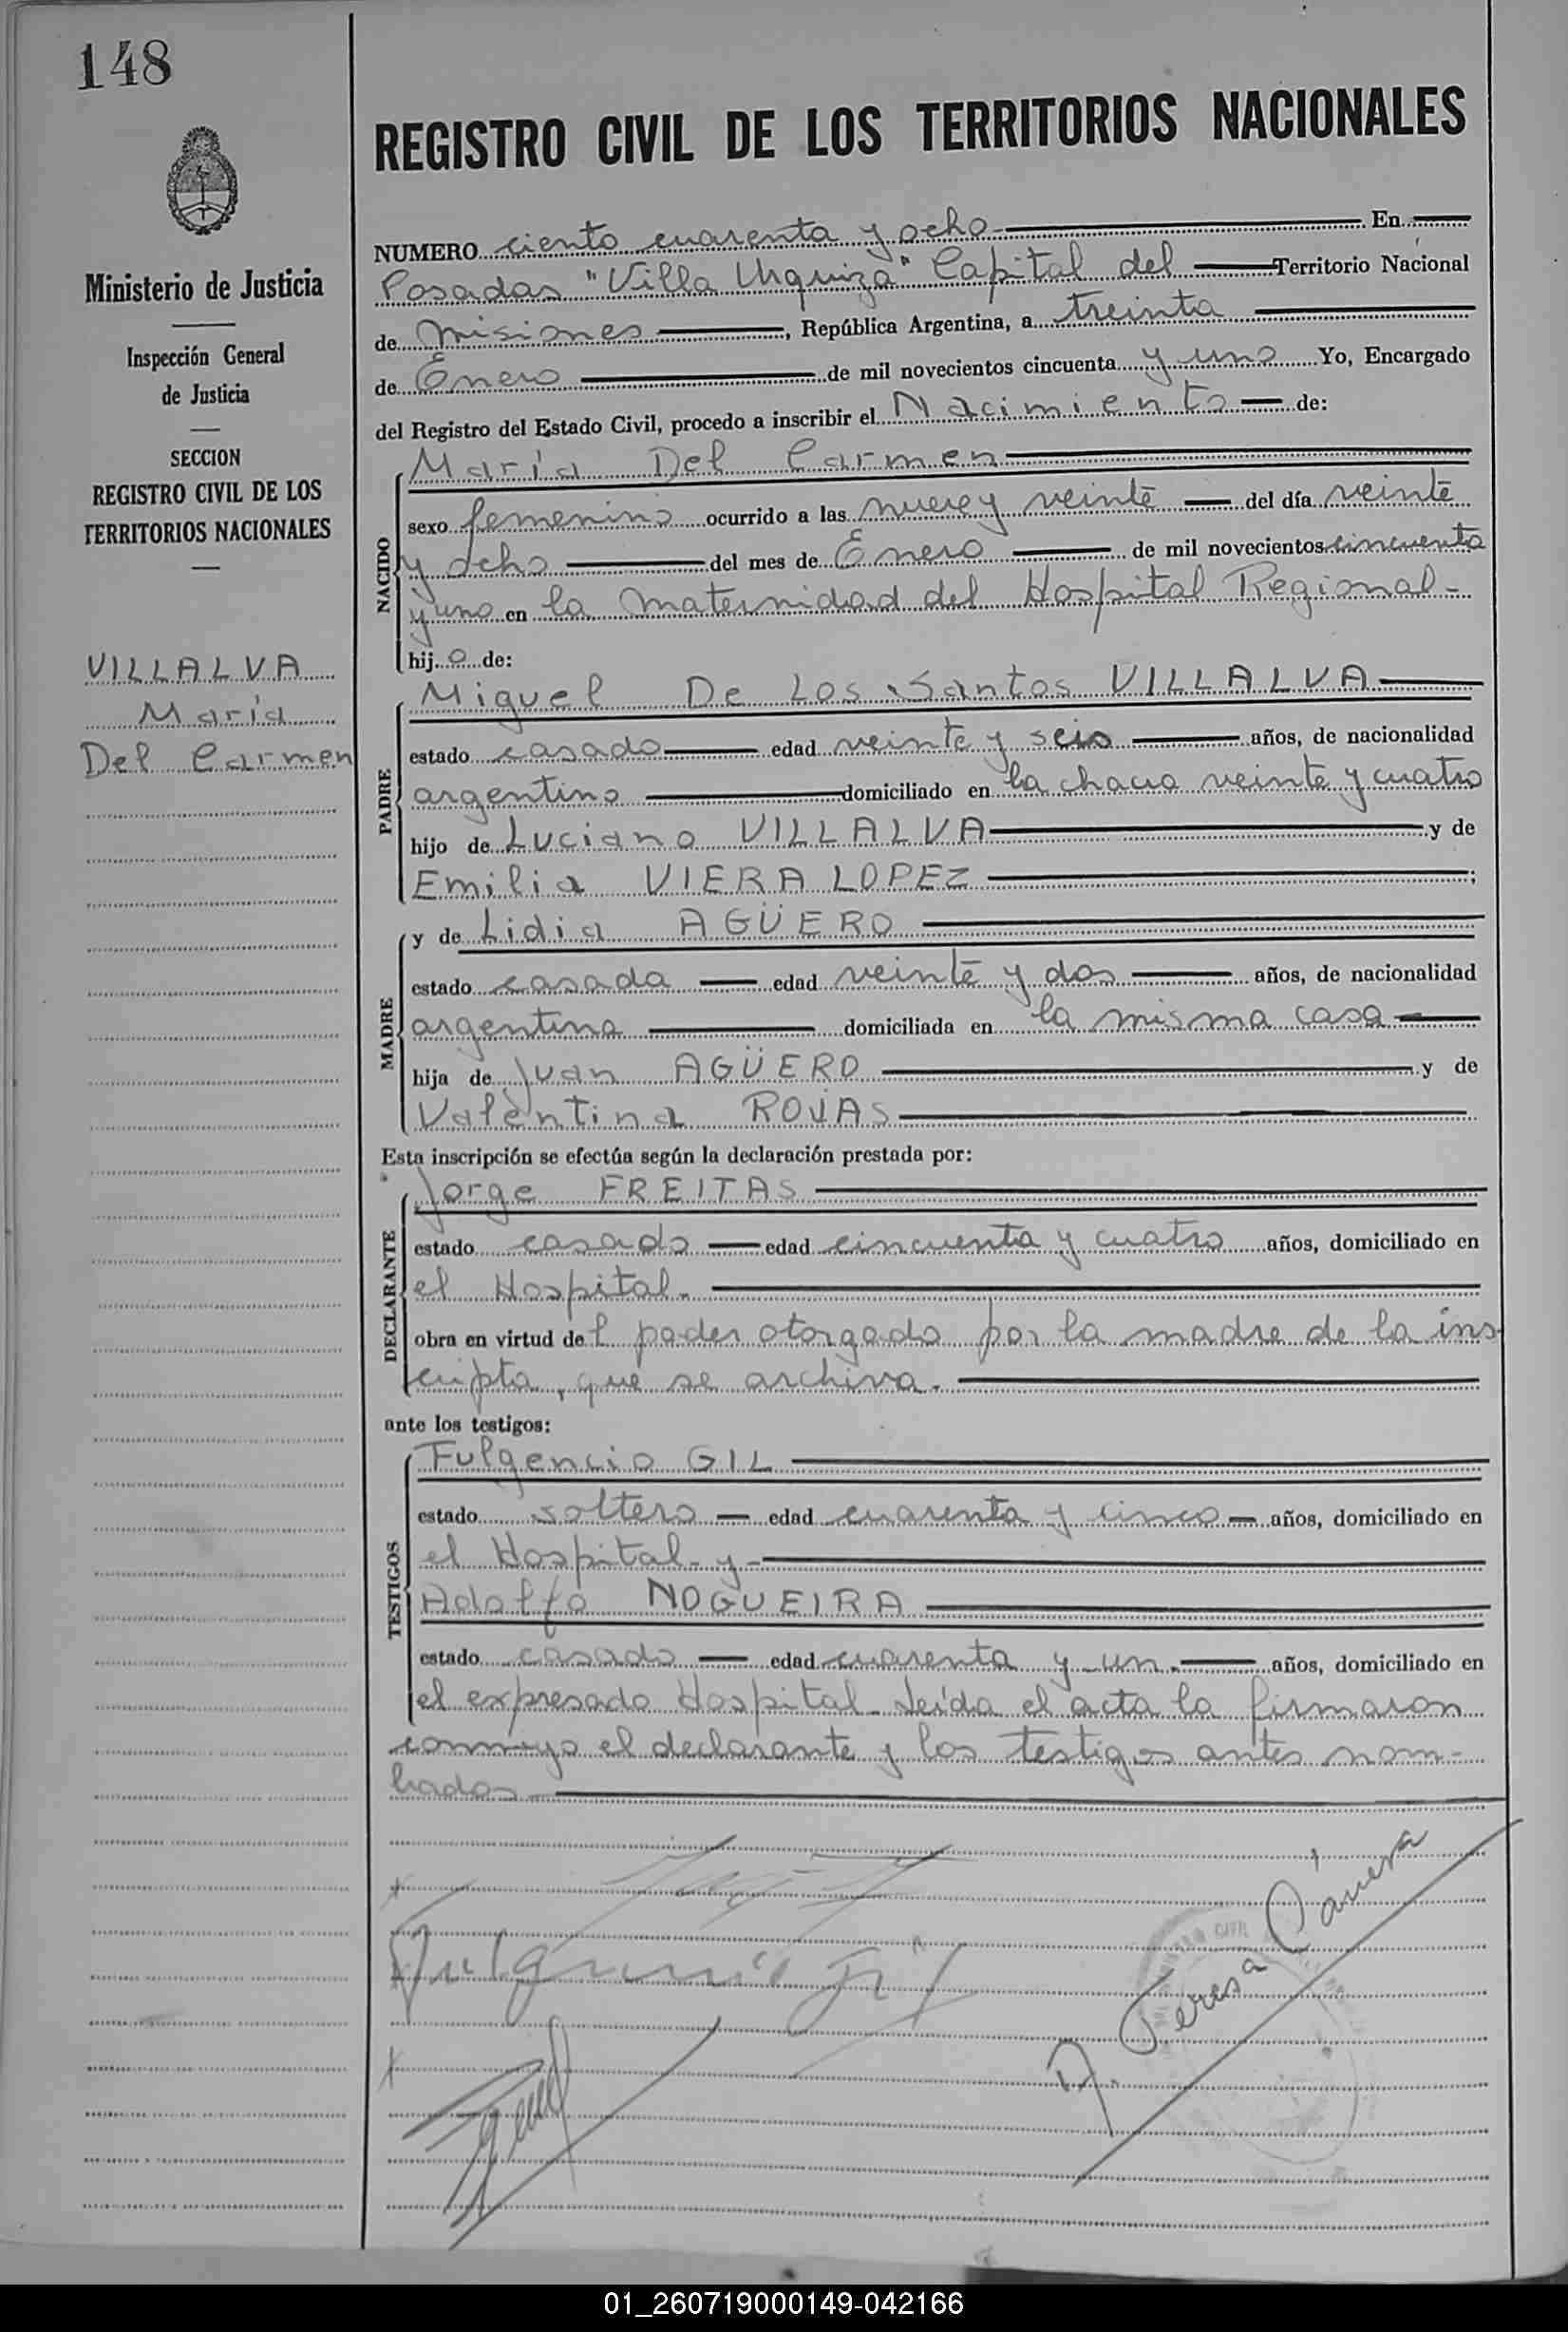 148
Ministerio de Justicia
Inspección General
de Justicia
SECCION
REGISTRO CIVIL DE LOS
TERRITORIOS NACIONALES
VILLALVA
María
Del Carmen
REGISTRO CIVIL DE LOS TERRITORIOS NACIONALES
NUMERO ciento cuarenta y ocho En
Posadas "Villa Urquiza" Capital del Territorio Nacional
de Misiones, República Argentina, a treinta
de Enero de mil novecientos cincuenta y uno Yo, Encargado
del Registro del Estado Civil, procedo a inscribir el Nacimiento de:
NACIDO
María Del Carmen
sexo femenino ocurrido a las nueve y veinte del día veinte
y ocho del mes de Enero de mil novecientos cincuenta
y uno en la maternidad del Hospital Regional-
hij o de:
PADRE
Miguel De Los Santos VILLALVA
estado casado edad veinte y seis años, de nacionalidad
argentino domiciliado en la chacra veinte y cuatro
hijo de Luciano VILLALVA y de
Emilia VIERA LOPEZ ;
MADRE
y de Lidia AGÜERO
estado casada edad veinte y dos años, de nacionalidad
argentina domiciliada en la misma casa
hija de Juan AGÜERO y de
Valentina ROJAS
Esta inscripción se efectúa según la declaración prestada por:
DECLARANTE
Jorge FREITAS
estado casado edad cincuenta y cuatro años, domiciliado en
el Hospital.
obra en virtud de l poder otorgado por la madre de la ins-
cripta, que se archiva.
ante los testigos:
TESTIGOS
Fulgencio GIL
estado soltero edad cuarenta y cinco años, domiciliado en
el Hospital- y-
Adolfo NOGUEIRA
estado casado edad cuarenta y un. años, domiciliado en
el expresado Hospital. Leída el acta la firmaron
conmigo el declarante y los testigos antes nom-
brados
Fulgencio Gil
A. Teresa Cánera
01_260719000149-042166